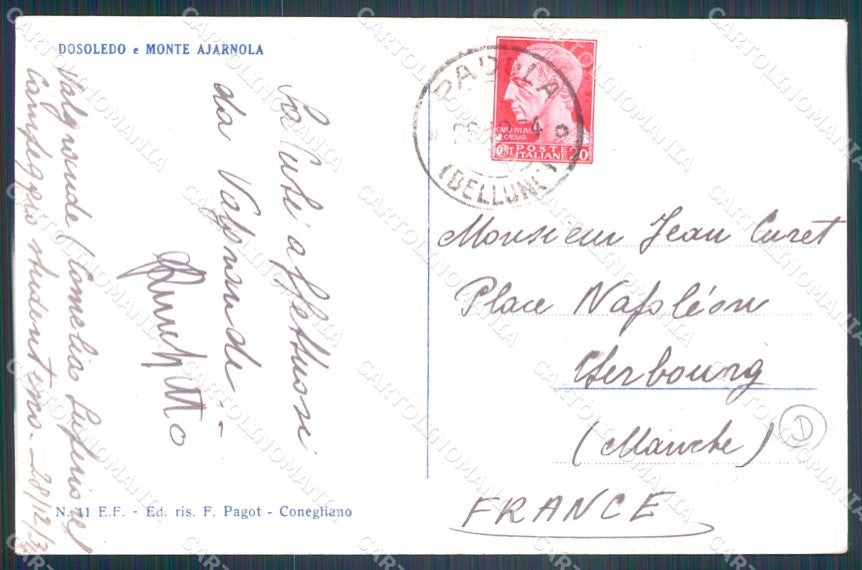 DOSOLEDO e MONTE AJARNOLA
Saluti affettuosi
da Valgrande..
Valgrande (Comelico Superiore)
Campeggio studentesco. 28/12/3
N. 11 E.F. - Ed. ris. F. Pagot - Conegliano
PADOLA
(BELLUNO)
CAIVS IVLIVS
CAESAR
POSTE
ITALIANE 20
Monsieur Jean Curet
Place Napoléon
Cherbourg
(Manche)
D
FRANCE
CARTOLINOMANIA